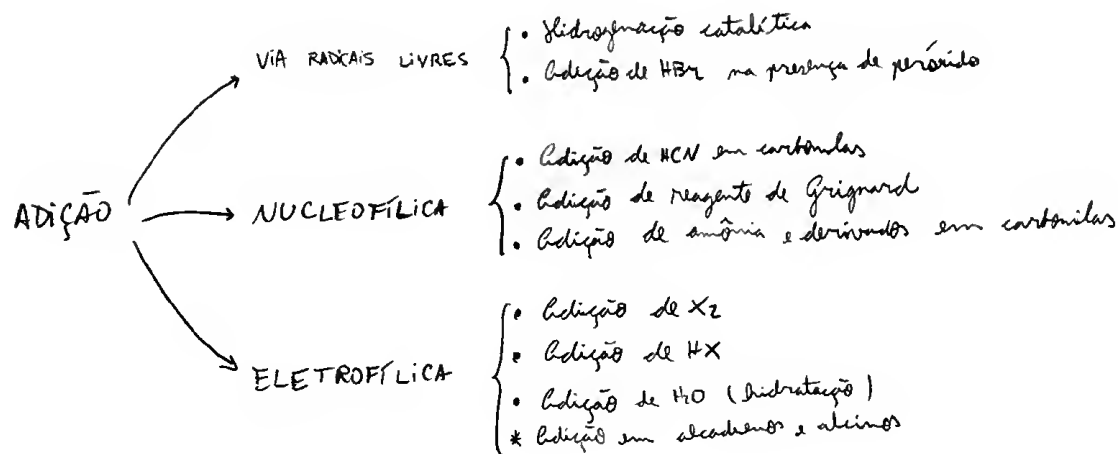 VIA RADICAIS LIVRES
• Hidrogenação catalítica
• Adição de HBr na presença de peróxido
ADIÇÃO
NUCLEOFÍLICA
• Adição de HCN em carbonilas
• Adição de reagente de Grignard
• Adição de amônia e derivados em carbonilas
ELETROFÍLICA
• Adição de X2
• Adição de HX
• Adição de H2O (hidratação)
* Adição em alcadienos e alcinos